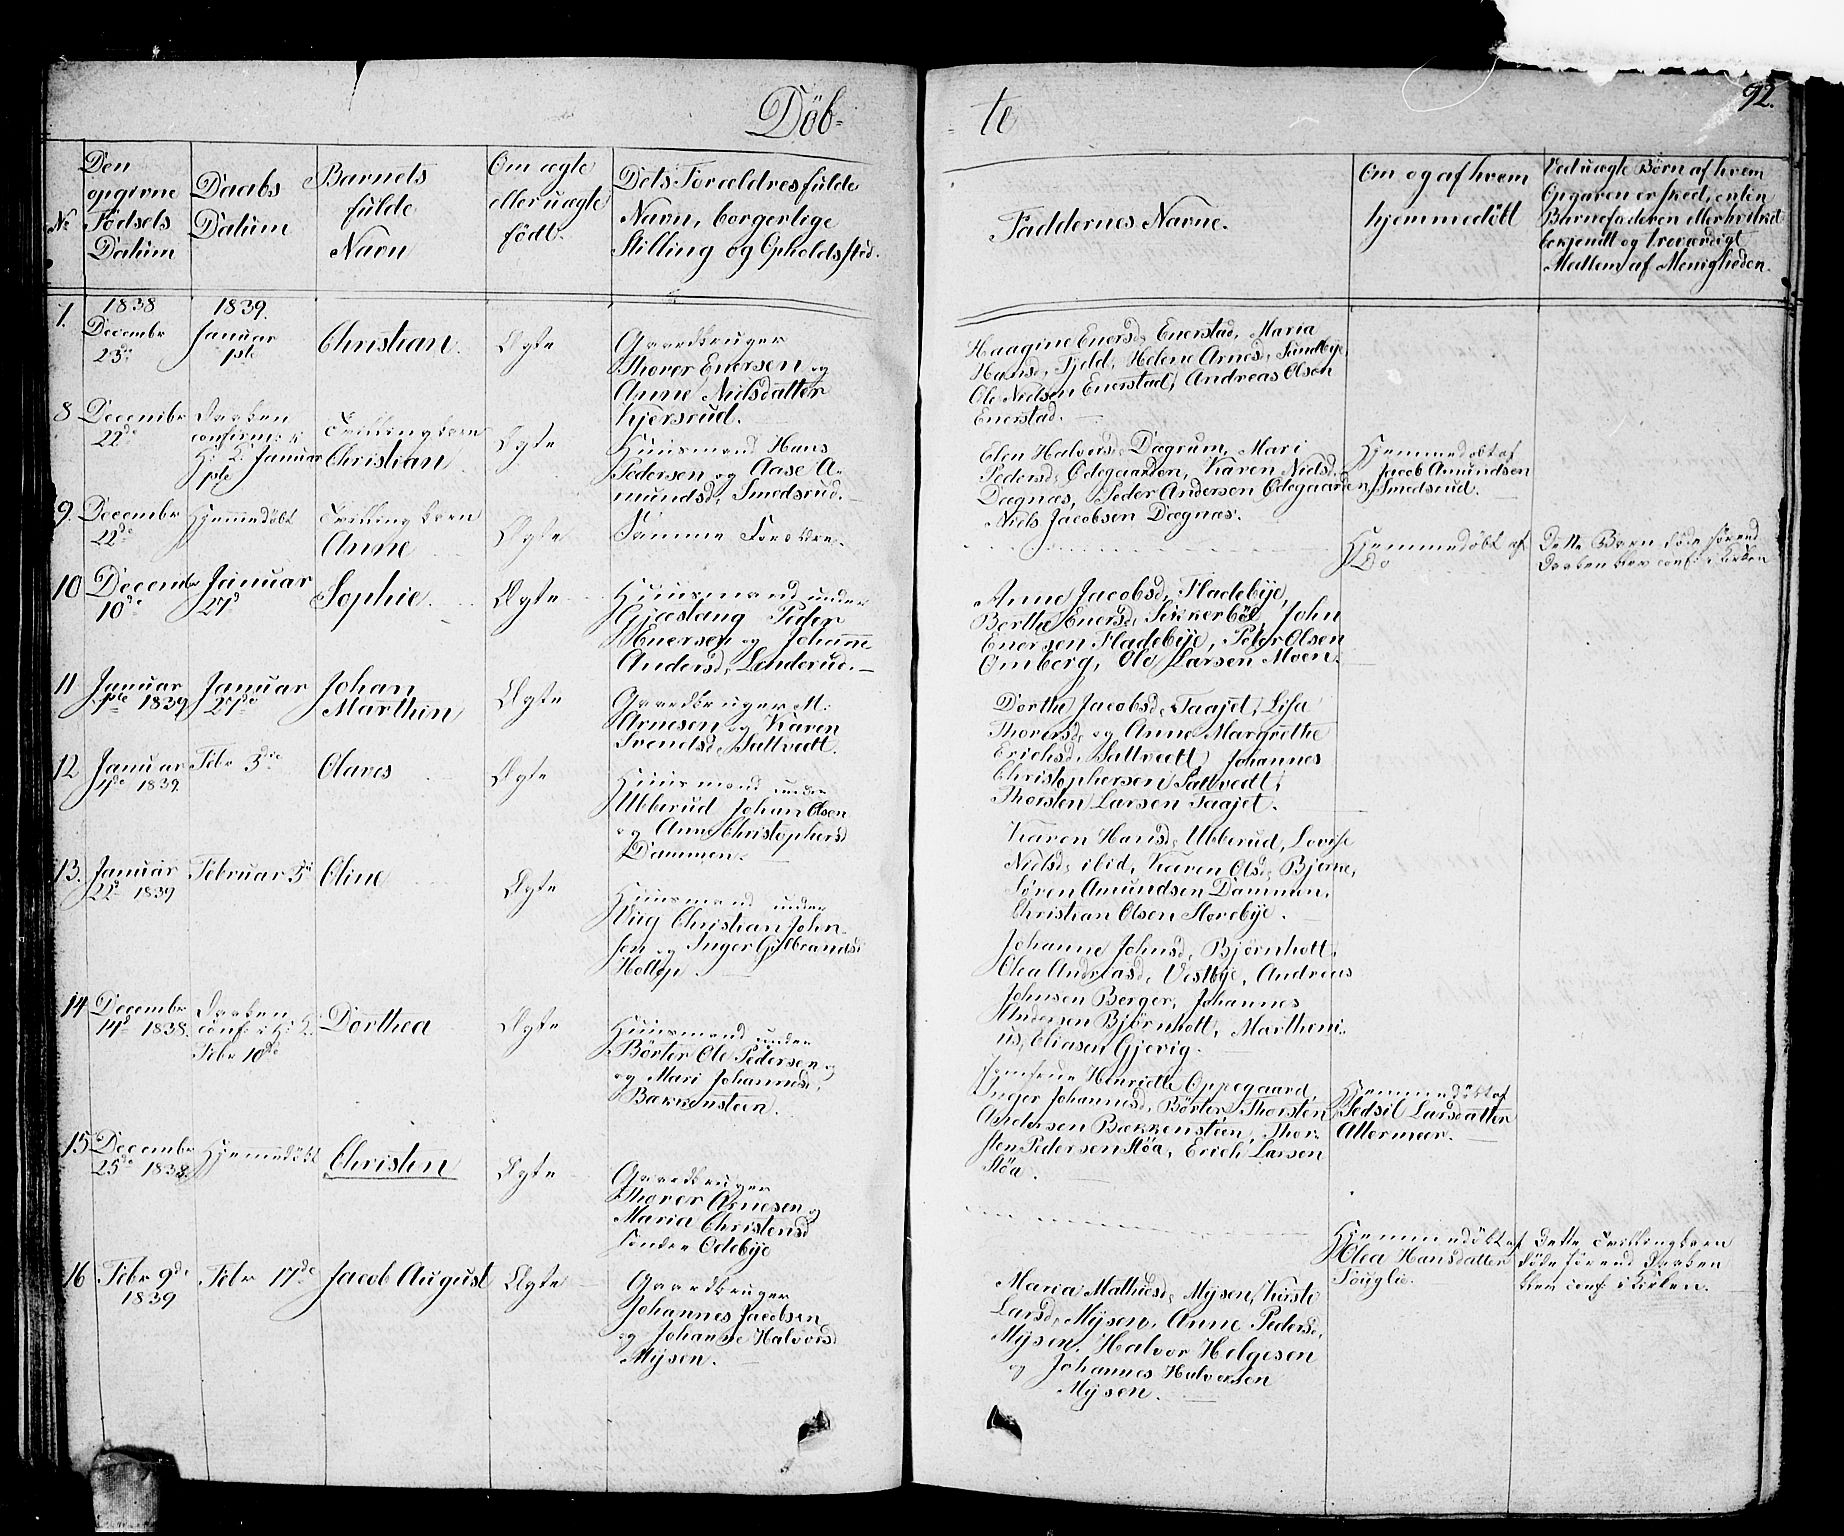 Döb-
- te
92.
No
Den
opgivne
Födsels
Datum
Daabs
Datum
Barnets
fulde
Navn
Om ægte
eller uægte
födt.
Dets Forældres fulde
Navn, borgerlige
Stilling og Opholdssted.
Faddernes Navne.
Om og af hvem
hjemmedöbt
Ved uægte Börn af hvem
Opgaven er skeed, enten
Barnefaderen eller hvilket
bekjendt og troværdigt
Medlem af Menigheden.
7.
1838
Decembr
23de
1839.
Januar
1ste
Christian.
Ægte
Gaardbruger
Thorer Enersen og
Anne Nielsdatter
Kjersrud.
Haagine Enersd. Enerstad, Maria
Hansd. Fjeld, Helene Arnesd. Sundbye,
Ole Nielsen Enerstad, Andreas Olsen
Enerstad.
8
Decembr
22de
Daaben
confirm: i
H: K. Januar
1ste
Tvillingbarn
Christian
Ægte
Huusmand Hans
Pedersen og Aase A-
mundsd. Smedsrud.
Elen Halvorsd. Dægrum, Mari
Pedersd. Ödegaarden, Karen Nielsd.
Dægnæs, Peder Andersen Ödegaarden,
Niels Jacobsen Dægnæs.
Hjemmedöbt af
Jacob Amundsen
Smedsrud.
9.
Decembr
22de
Hjemmedöbt
Tvillingbarn
Anne
Ægte
Samme Forældre.
Hjemmedöbt af
Do
Dette Barn döde förend
Daaben blev conf: i Kirken
10
Decembr
10de
Januar
27de
Sophie.
Ægte
Huusmand under
Gjæstang Peder
Enersen og Johanne
Andersd. Lenderud.
Anne Jacobsd. Fladebye,
Berthe Enersd. Sikkerböl, John
Enersen Fladebye, Peder Olsen
Omberg, Ole Larsen Moen.
11
Januar
1ste 1839
Januar
27de
Johan
Marthin
Ægte
Gaardbruger M:
Arnesen og Karen
Svendsd. Saltvedt.
Dorthe Jacobsd. Taajet, Lisa
Thorersd. og Anne Margrethe
Erichsd. Saltvedt, Johannes
Christophersen Saltvedt,
Thorsten Larsen Taajet.
12
Januar
4de 1839.
Febr 3die
Olaves
Ægte
Huusmand under
Ubberud Johan Olsen
og Anne Christophersd.
Dammen.
Karen Hansd. Ubberud, Lovise
Nielsd. ibid, Karen Olsd. Bjerne,
Sören Amundsen Dammen,
Christian Olsen Storebye.
13.
Januar
22de 1839
Februar 3die
Oline
Ægte
Huusmand under
Viig Christian John-
sen og Inger Gulbrandsd.
Holtop.
Johanne Johnsd. Björnholt,
Olea Andreasd. Vestbye, Andreas
Johnsen Berger, Johannes
Andersen Björnholt, Martheni-
us Eliasen Gjevig.
14
Decembr
14de 1838.
Daaben
conf: i H: K:
Febr 10de
Dorthea
Ægte
Huusmand under
Börter Ole Pedersen og
og Mari Johannesd.
Bækkensteen.
Jomfrue Henriette Oppegaard,
Inger Johannesd. Börter, Thorsten
Andersen Bækkensteen, Thor-
sten Pedersen Stöa, Erich Larsen
Stöa.
Hjemmedöbt af
Sidsil Larsdatter
Attermeer.
15
Decembr
25de 1838.
Hjemmedöbt
Christen
Ægte
Gaardbruger
Thorer Arnesen og
Maria Christensd.
Söndre Odebye
Hjemmedöbt af
Olea Hansdatter
Souglie.
Dette Tvillingbarn
döde förend Daaben
blev conf: i Kirken.
16
Febr 9de
1839
Febr 17de
Jacob August
Ægte
Gaardbruger
Johannes Jacobsen
og Johanne Halvorsd.
Mysen.
Maria Mathiesd. Mysen, Kirsti
Larsd. Mysen, Anne Pedersd.
Mysen, Halvor Helgesen
og Johannes Halvorsen
Mysen.